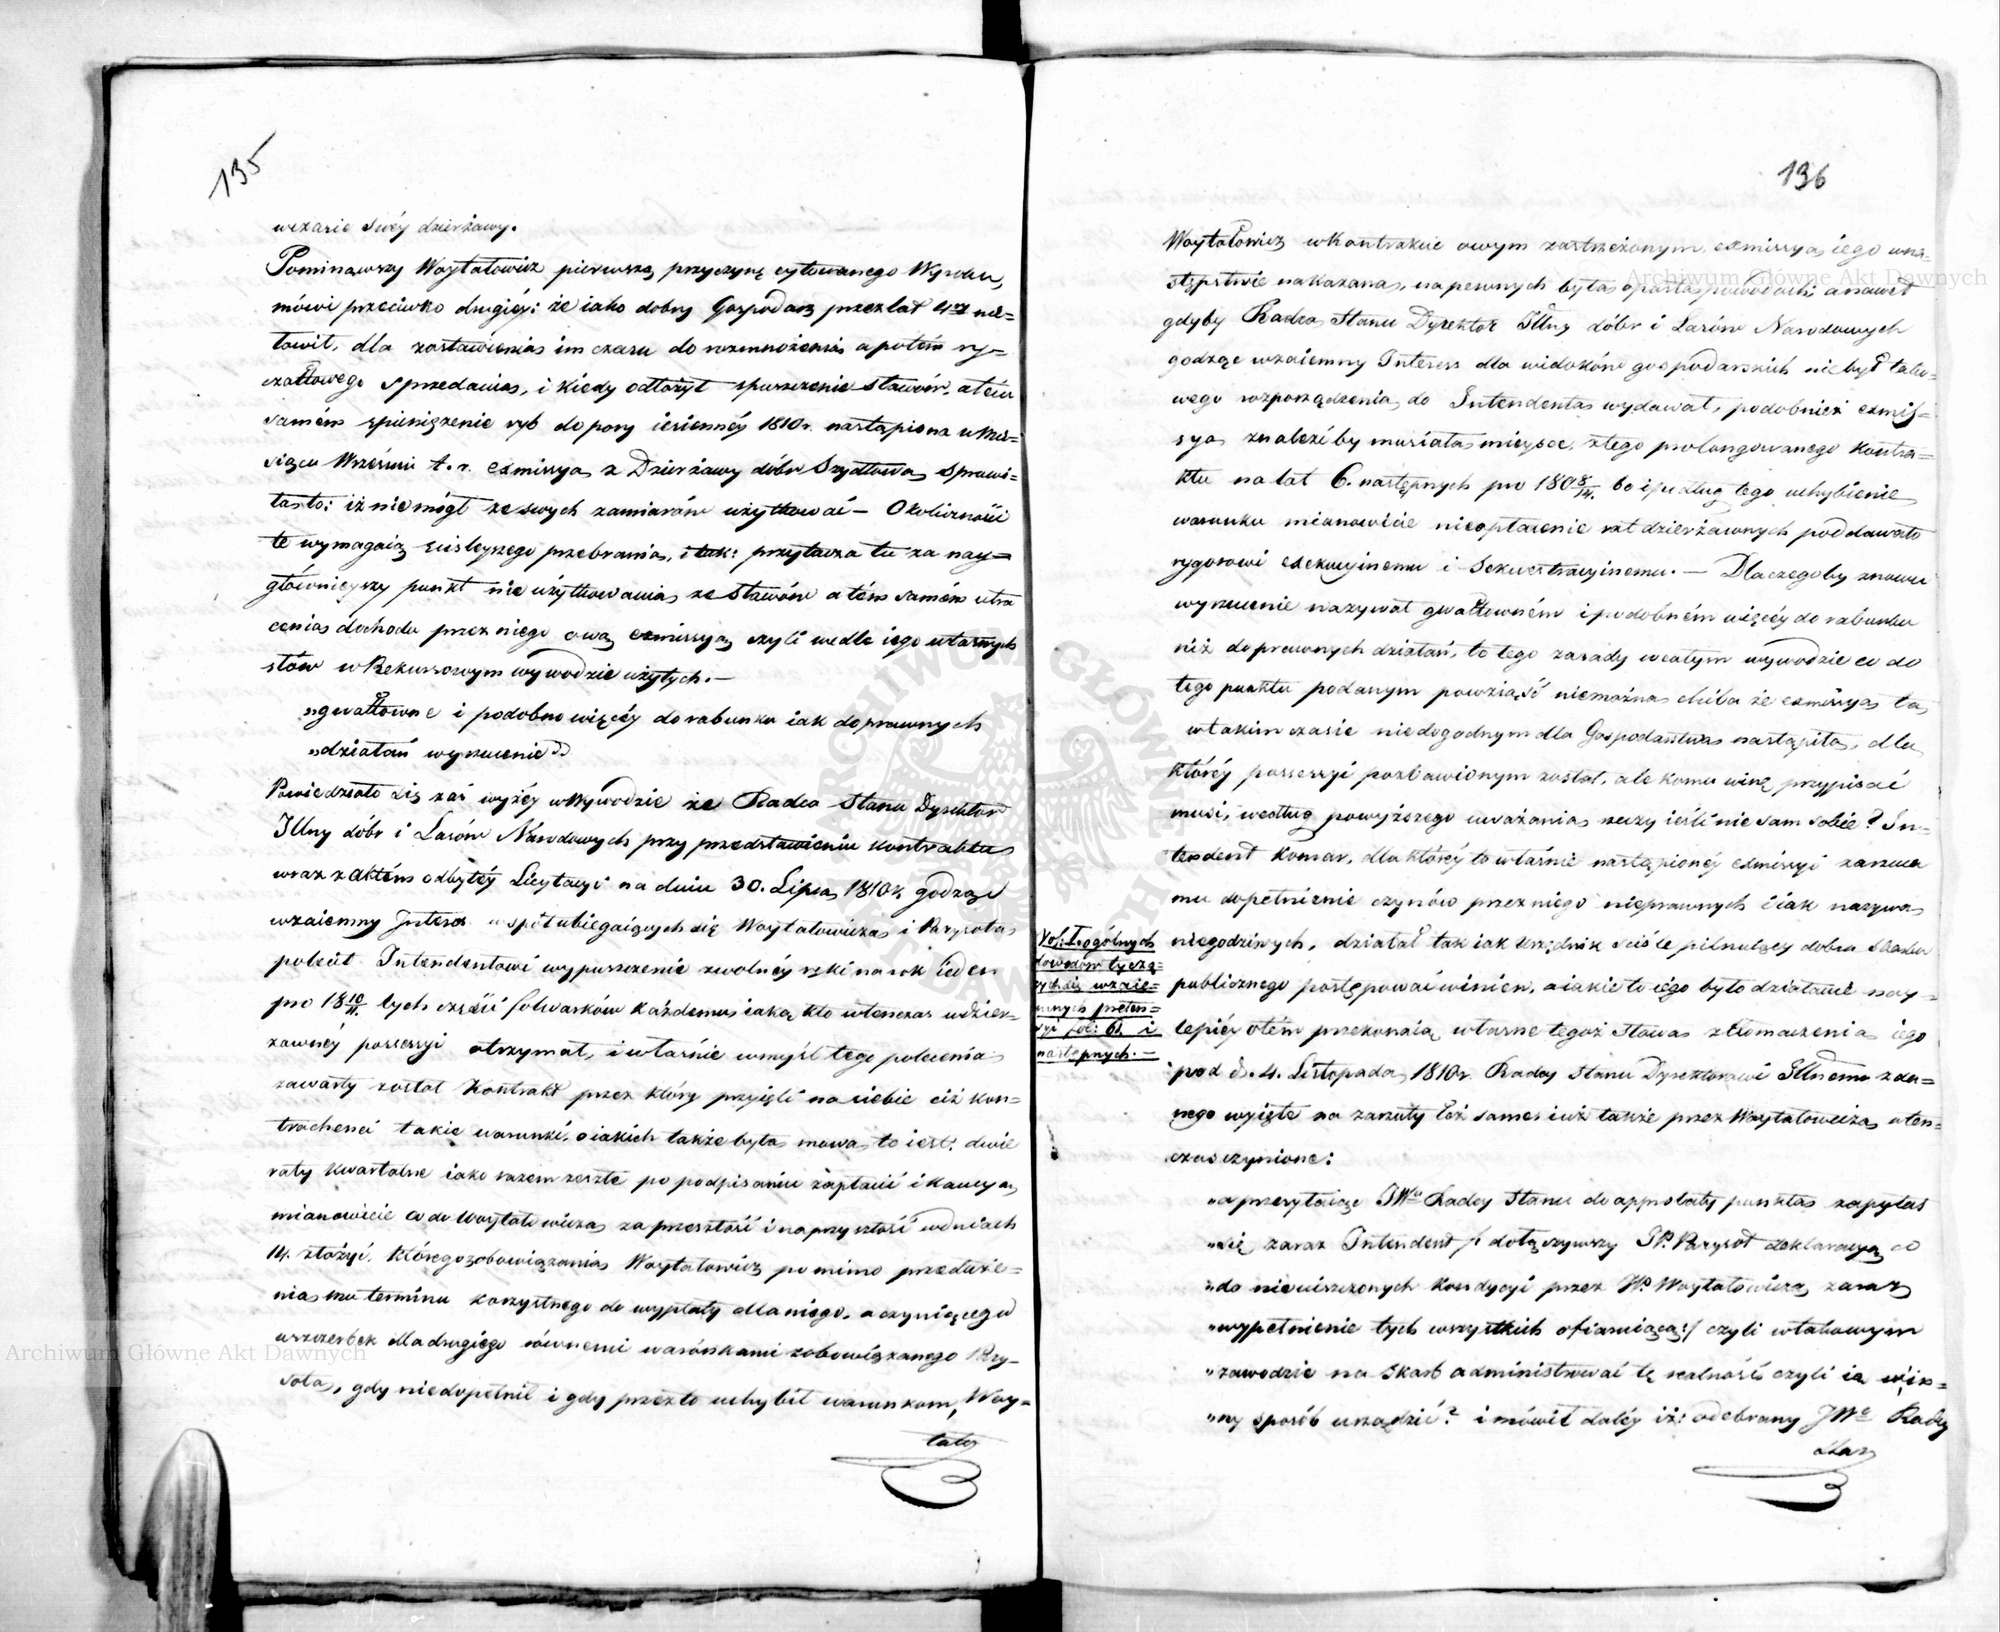 135
wczasie swéy dzierżawy.
Pominąwszy Woytałowicz pierwszą przyczynę cytowanego Wyroku,
mówi przeciwko drugiéy: że iako dobry Gospodarz przez lat 4ry nie=
łowił, dla zostawienia im czasu do rozmnożenia a potém ry=
czałtowego sprzedania, i kiedy odłożył spuszczenie stawów, a tém
samém spieniężenie ryb do pory iesiennéy 1810 r. nastąpiona w Mie=
siącu Wrześniu t. r. exmissya z Dzierżawy dóbr Szydłowa, sprawi=
ła to: iż nie mógł ze swych zamiarów użytkować — Okoliczności
te wymagaią ściśleyszego przebrania, i tak: przytacza tu za nay=
głównieyszy punkt nie użytkowania ze stawów a tém samém utra
cenia dochodu przez niego ową exmissyą czyli wedle iego własnych
słów w Rekursowym wywodzie użytych. —
„gwałtowne i podobno więcéy do rabunku iak do prawnych
„działań wyrzucenie”
Powiedziało się zaś wyżéy w Wywodzie że Radca Stanu Dyrektor
Jllny dóbr i Lasów Narodowych przy przedstawieniu kontraktu
wraz z aktém odbytéy Licytacyi na dniu 30. Lipca 1810 r. godząc
wzaiemny Interes współubiegaiących się Woytałowicza i Parysota
polecił Intendentowi wypuszczenie z wolnéy ręki na rok ieden
pro 18 10/11 tych części folwarków każdemu iaką kto wtenczas w dzier=
żawnéy possessyi otrzymał, i właśnie w myśl tego polecenia
zawarty został Kontrakt przez który przyięli na siebie ciż kon=
trahenci takie warunki, o iakich także była mowa, to iest: dwie
raty kwartalne iako razem zeszłe po podpisaniu zapłacić i kaucyą
mianowicie co do Woytałowicza za przeszłość i na przyszłość w dniach
14. złożyć. Którego zobowiązania Woytałowicz pomimo przedłuże=
nia mu terminu korzystnego do wypłaty dla niego, a czyniącego
uszczerbek dla drugiego równemi warunkami zobowiązanego Pary=
sota, gdy niedopełnił i gdy przez to uchybił warunkom, Woy=
tało
136
Woytałowicz w Kontrakcie owym zastrzeżonym, exmissya iego w na=
stępstwie nakazana, na pewnych była oparta powodach; a nawet
gdyby Radca Stanu Dyrektor Jllny dóbr i Lasów Narodowych
godząc wzaiemny Interess dla widoków gospodarskich nie był tako=
wego rozporządzenia do Intendenta wydawał, podobnież exmis=
sya znaleźćby musiała mieysce, z tego prolongowanego kontra=
ktu na lat 6. następnych pro 180 8/14. bo i podług tego uchybienie
warunku mianowicie nieopłacenie rat dzierżawnych poddawało
rygorowi exekucyinemu i Sekwestracyinemu. — Dla czegoby znowu
wyrzucenie nazywał gwałtowném i podobném więcéy do rabunku
niż do prawnych działań, to tego zasady w całym wywodzie co do
tego punktu podanym powziąść niemożna chiba że exmissya ta
w takim czasie niedogodnym dla Gospodarstwa nastąpiła, dla
któréy possessyi pozbawionym został, ale komu winę przypisać
musi, według powyższego uważania rzeczy ieśli nie sam sobie? In=
tendent Komar, dla któréy to właśnie nastąpionéy exmissyi zarzuca
mu dopełnienie czynów przez niego nieprawnych i iak nazywa
niegodziwych, działał tak iak Urzędnik ściśle pilnuiący dobra Skarbu
publicznego postępować winien, a iakie to iego było działanie nay=
lepiéy o tém przekonaią własne tegoż słowa z tłomaczenia iego
pod d. 4. Listopada 1810 r. Radcy Stanu Dyrektorowi Jllnemu zda=
nego wyięte na zarzuty też same iuż także przez Woytałowicza wten=
czas czynione:
Vol: I. ogólnych
dowodów tyczą=
cych się wzaie=
mnych preten=
syi fol: 61. i
następnych. —
„a przesyłaiąc JWu Radcy Stanu do approbaty punkta zapytał
„się zaraz Intendent /: dołączywszy JP. Parysot deklaracyą co
„do nieuiszczonych kondycyi przez JP. Woytałowicza zaraz
„wypełnienie tych wszystkich ofiaruiącą :/ czyli w takowym
„zawodzie na Skarb administrować tę realność czyli ią w in=
„ny sposób urządzić? i mówił daléy iż: odebrany JWo Radcy
Stanu